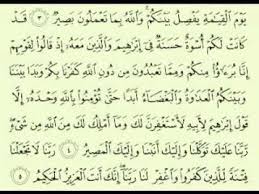 يَوْمَ ٱلْقِيَٰمَةِ يَفْصِلُ بَيْنَكُمْ وَٱللَّهُ بِمَا تَعْمَلُونَ بَصِيرٌ ٣ قَدْ
كَانَتْ لَكُمْ أُسْوَةٌ حَسَنَةٌ فِىٓ إِبْرَٰهِيمَ وَٱلَّذِينَ مَعَهُۥٓ إِذْ قَالُوا۟ لِقَوْمِهِمْ
إِنَّا بُرَءَٰٓؤُا۟ مِنكُمْ وَمِمَّا تَعْبُدُونَ مِن دُونِ ٱللَّهِ كَفَرْنَا بِكُمْ وَبَدَا بَيْنَنَا
وَبَيْنَكُمُ ٱلْعَدَٰوَةُ وَٱلْبَغْضَآءُ أَبَدًا حَتَّىٰ تُؤْمِنُوا۟ بِٱللَّهِ وَحْدَهُۥٓ إِلَّا
قَوْلَ إِبْرَٰهِيمَ لِأَبِيهِ لَأَسْتَغْفِرَنَّ لَكَ وَمَآ أَمْلِكُ لَكَ مِنَ ٱللَّهِ مِن شَىْءٍ
رَّبَّنَا عَلَيْكَ تَوَكَّلْنَا وَإِلَيْكَ أَنَبْنَا وَإِلَيْكَ ٱلْمَصِيرُ ٤ رَبَّنَا لَا تَجْعَلْنَا
فِتْنَةً لِّلَّذِينَ كَفَرُوا۟ وَٱغْفِرْ لَنَا رَبَّنَآ إِنَّكَ أَنتَ ٱلْعَزِيزُ ٱلْحَكِيمُ ٥